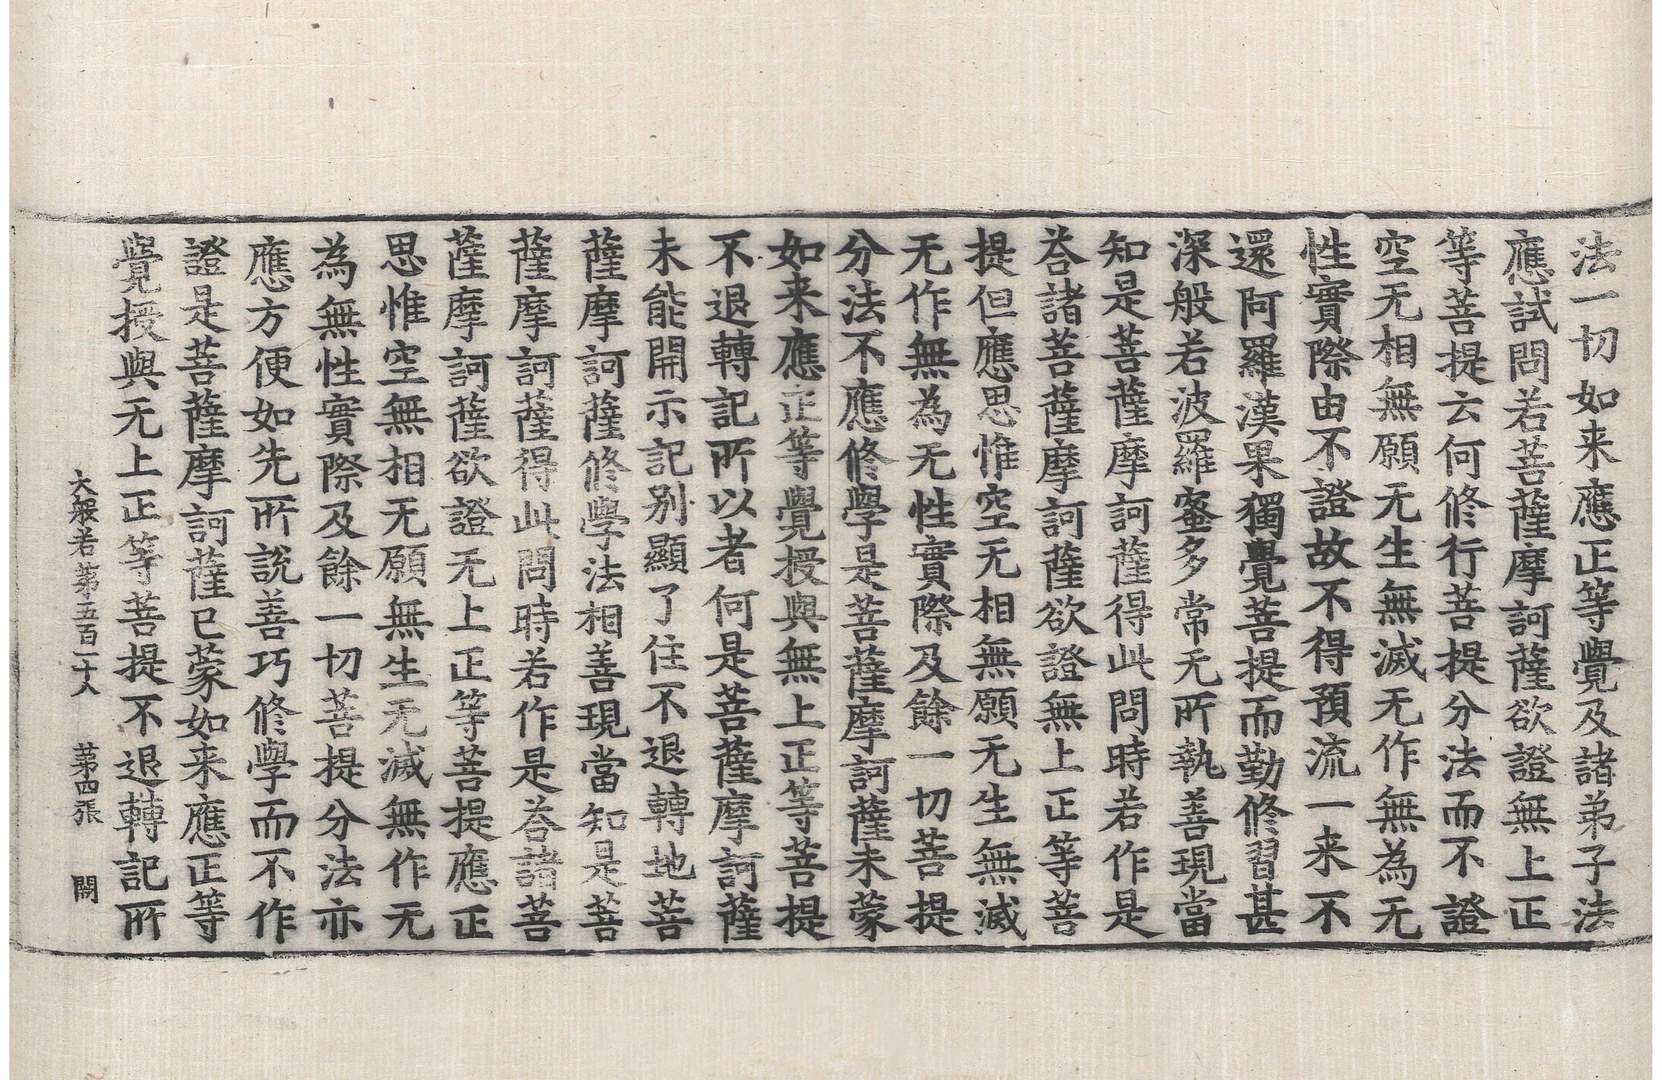 法一切如来應正等覺及諸弟子法
應試問若菩薩摩訶薩欲證無上正
等菩提云何修行菩提分法而不證
空无相無願无生無滅无作無為无
性實際由不證故不得預流一来不
還阿羅漢果獨覺菩提而勤修習甚
深般若波羅蜜多常无所執善現當
知是菩薩摩訶薩得此問時若作是
荅諸菩薩摩訶薩欲證無上正等菩
提但應思惟空无相無願无生無滅
无作無為无性實際及餘一切菩提
分法不應修學是菩薩摩訶薩未蒙
如来應正等覺授與無上正等菩提
不退轉記所以者何是菩薩摩訶薩
未能開示記别顯了住不退轉地菩
薩摩訶薩修學法相善現當知是菩
薩摩訶薩得此問時若作是荅諸菩
薩摩訶薩欲證无上正等菩提應正
思惟空無相无願無生无滅無作无
為無性實際及餘一切菩提分法亦
應方便如先所說善巧修學而不作
證是菩薩摩訶薩已蒙如来應正等
覺授與无上正等菩提不退轉記所
大般若第五百二十八 第四張 闕